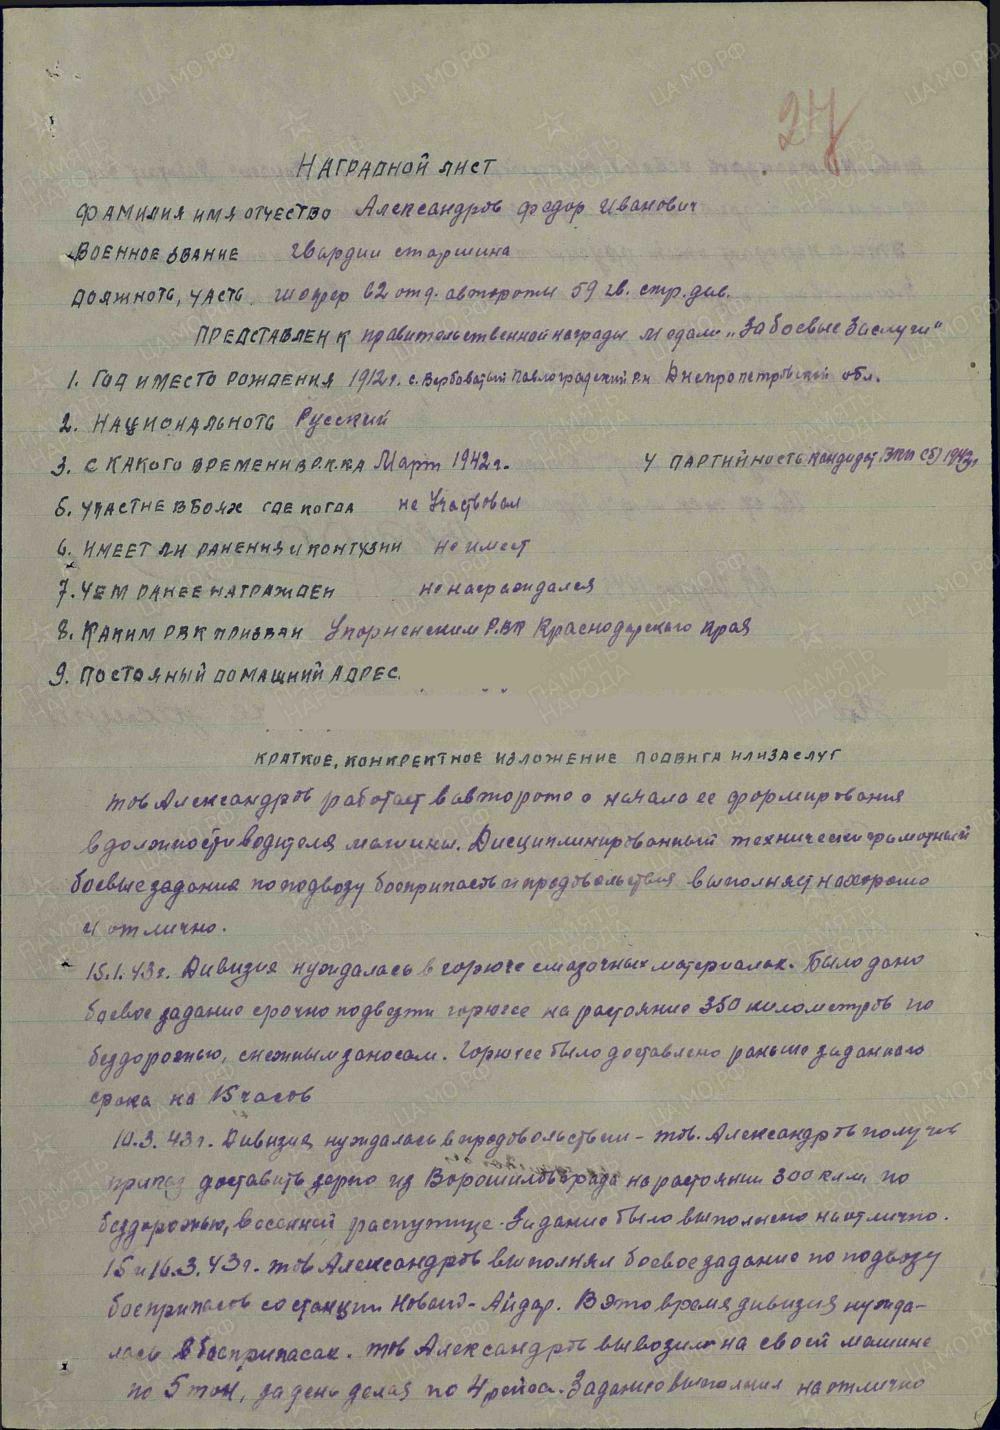 27
НАГРАДНОЙ ЛИСТ
ФАМИЛИЯ ИМЯ ОТЧЕСТВО Александров Федор Иванович
ВОЕННОЕ ЗВАНИЕ гвардии старшина
ДОЛЖНОТЬ, ЧАСТЬ шофер 62 отд. автороты 59 гв. стр. див.
ПРЕДСТАВЛЕН К правительственной награды медали „За боевые Заслуги"
1. ГОД И МЕСТО РОЖДЕНИЯ 1912 г. с. Вербоватый Павлоградский р-н Днепропетровской обл.
2. НАЦИОНАЛЬНОТЬ Русский
3. С КАКОГО ВРЕМЕНИ В Р.К.КА Март 1942 г. 4 ПАРТИЙНОСТЬ кандидат ВКП(б) 1943 г
5. УЧАСТИЕ В БОЯХ ГДЕ КОГДА не Участвовал
6. ИМЕЕТ ЛИ РАНЕНИЯ И КОНТУЗИИ не имеет
7. ЧЕМ РАНЕЕ НАГРАЖДЕН не награждался
8. КАКИМ РВК ПРИЗВАН Упорненским РВК Краснодарского края
9. ПОСТОЯНЫЙ ДОМАШНИЙ АДРЕС.
КРАТКОЕ, КОНКРЕКТНОЕ ИЗЛОЖЕНИЕ ПОДВИГА ИЛИ ЗАСЛУГ
тов Александров работает в автороте с начала ее формирования
в должности водителя машины. Дисциплинированный технически грамотный
боевые задания по подвозу боеприпасов и продовольствия выполняет на хорошо
и отлично.
15.1.43 г. Дивизия нуждалась в горюче смазочных материалах. Было дано
боевое задание срочно подвезти горючее на растояние 350 километров по
бездорожью, снежным заносам. Горючее было доставлено раньше заданного
срока на 15 часов
10.3.43 г. Дивизия нуждалась в продовольствии - тов. Александров получив
приказ доставить зерно из Ворошиловграда на растоянии 300 клм. по
бездорожью, весенней распутице. Задание было выполнено на отлично.
15 и 16.3.43 г. тов Александров выполнял боевое задание по подвозу
боеприпасов со станции Новый-Айдар. В это время дивизия нужда-
лась в боеприпасах. тов Александров вывозил на своей машине
по 5 тон, за день делая по 4 рейса. Задание выполнил на отлично